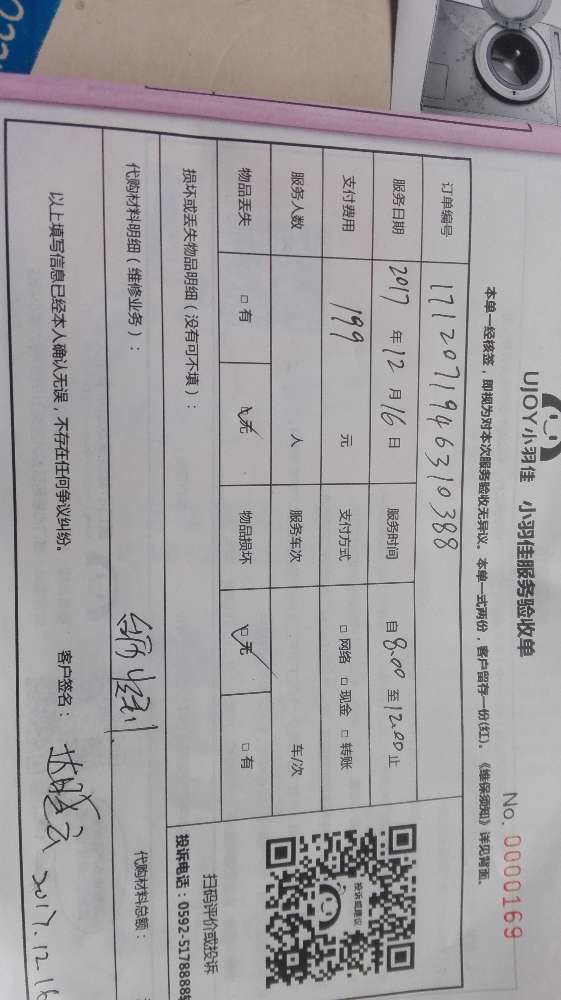 UJOY小羽佳 小羽佳服务验收单
No. 0000169
本单一经核签，即视为对本次服务验收无异议。本单一式两份，客户留存一份(红)。《维保须知》详见背面。
订单编号 1712071946310388
服务日期 2017 年 12 月 16 日 服务时间 自 8:00 至 12:00 止
支付费用 199 元 支付方式 □ 网络 □ 现金 □ 转账
服务人数 人 服务车次 车/次
物品丢失 □ 有 □ 无 物品损坏 □ 无 □ 有
损坏或丢失物品明细（没有可不填）：
投诉或建议
扫码评价或投诉
投诉电话：0592-5178888转
代购材料明细（维修业务）：
代购材料总额：
以上填写信息已经本人确认无误，不存在任何争议纠纷。
客户签名： 2017.12.16